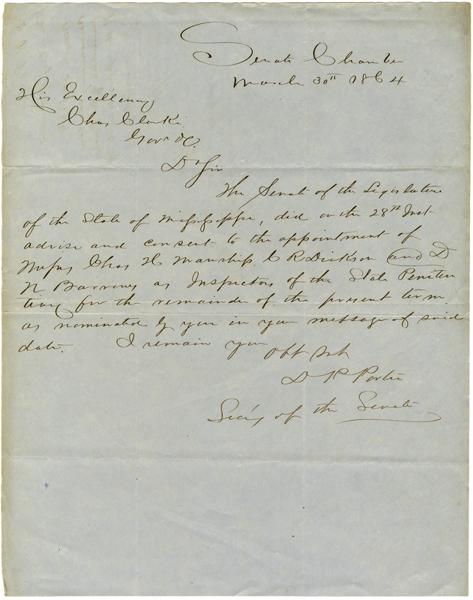 Senate Chamber
March 30th 1864
His Excellency
Chas Clarke
Gov &c.
Dr Sir
The Senate of the Legislature
of the State of Mississippi, did on the 28th Inst
advise and consent to the appointment of
Messrs Chas H Manship C R Dickson and D
N Barrows as Inspectors of the State Peniten
tiary for the remainder of the present term
as nominated by you in your message of said
date. I remain your
Obt Svt
D P Porter
Sec'y of the Senate